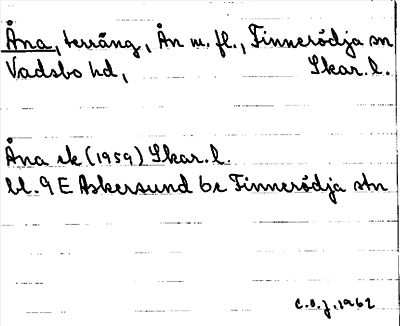 Åna, terräng, Ån m. fl., Finnerödja sn
Vadsbo hd, Skar. l.
Åna ek (1959) Skar. l.
bl. 9 E Askersund 6e Finnerödja stn
C.O.J. 1962